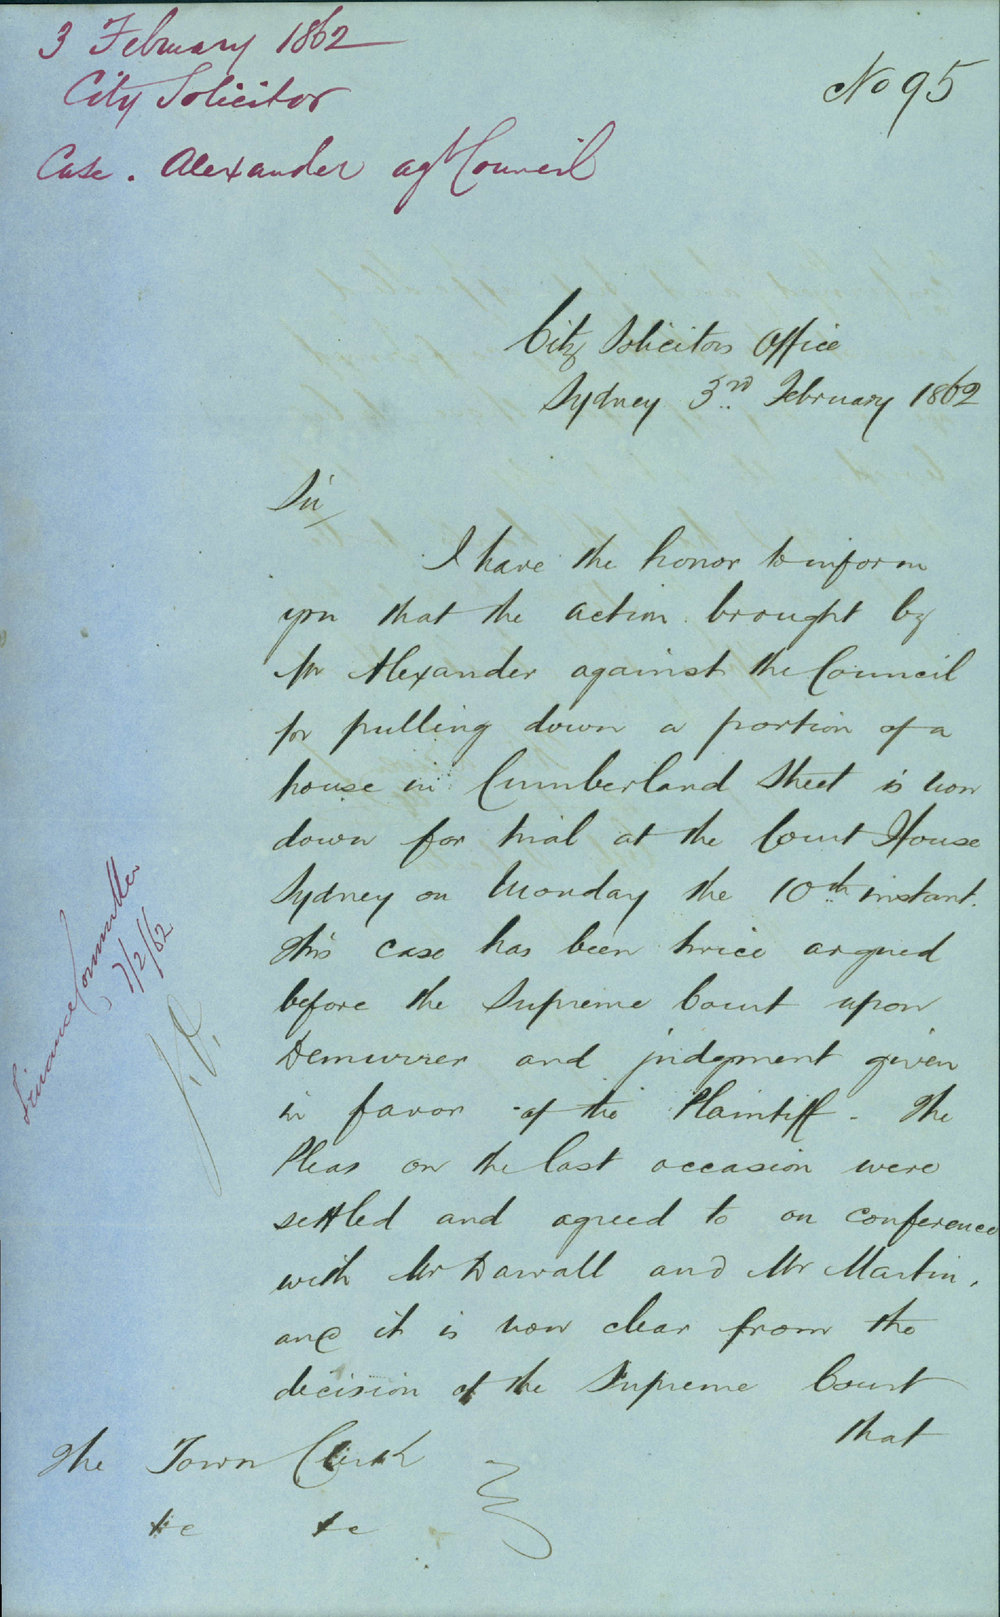 3 February 1862
City Solicitor
No 95
Case. Alexander agt Council
City Solicitors Office
Sydney 3rd February 1862
Sir
I have the honor to inform
you that the action brought by
Mr Alexander against the Council
for pulling down a portion of a
house in Cumberland Street is now
down for trial at the Court House
Sydney on Monday the 10th instant.
This case has been twice argued
before the Supreme Court upon
Demurrer and judgment given
in favor of the Plaintiff. The
Pleas on the last occasion were
settled and agreed to on conference
with Mr Darvall and Mr Martin,
and it is now clear from the
decision of the Supreme Court
that
The Town Clerk
&c &c
Finance Committee
7/2/62